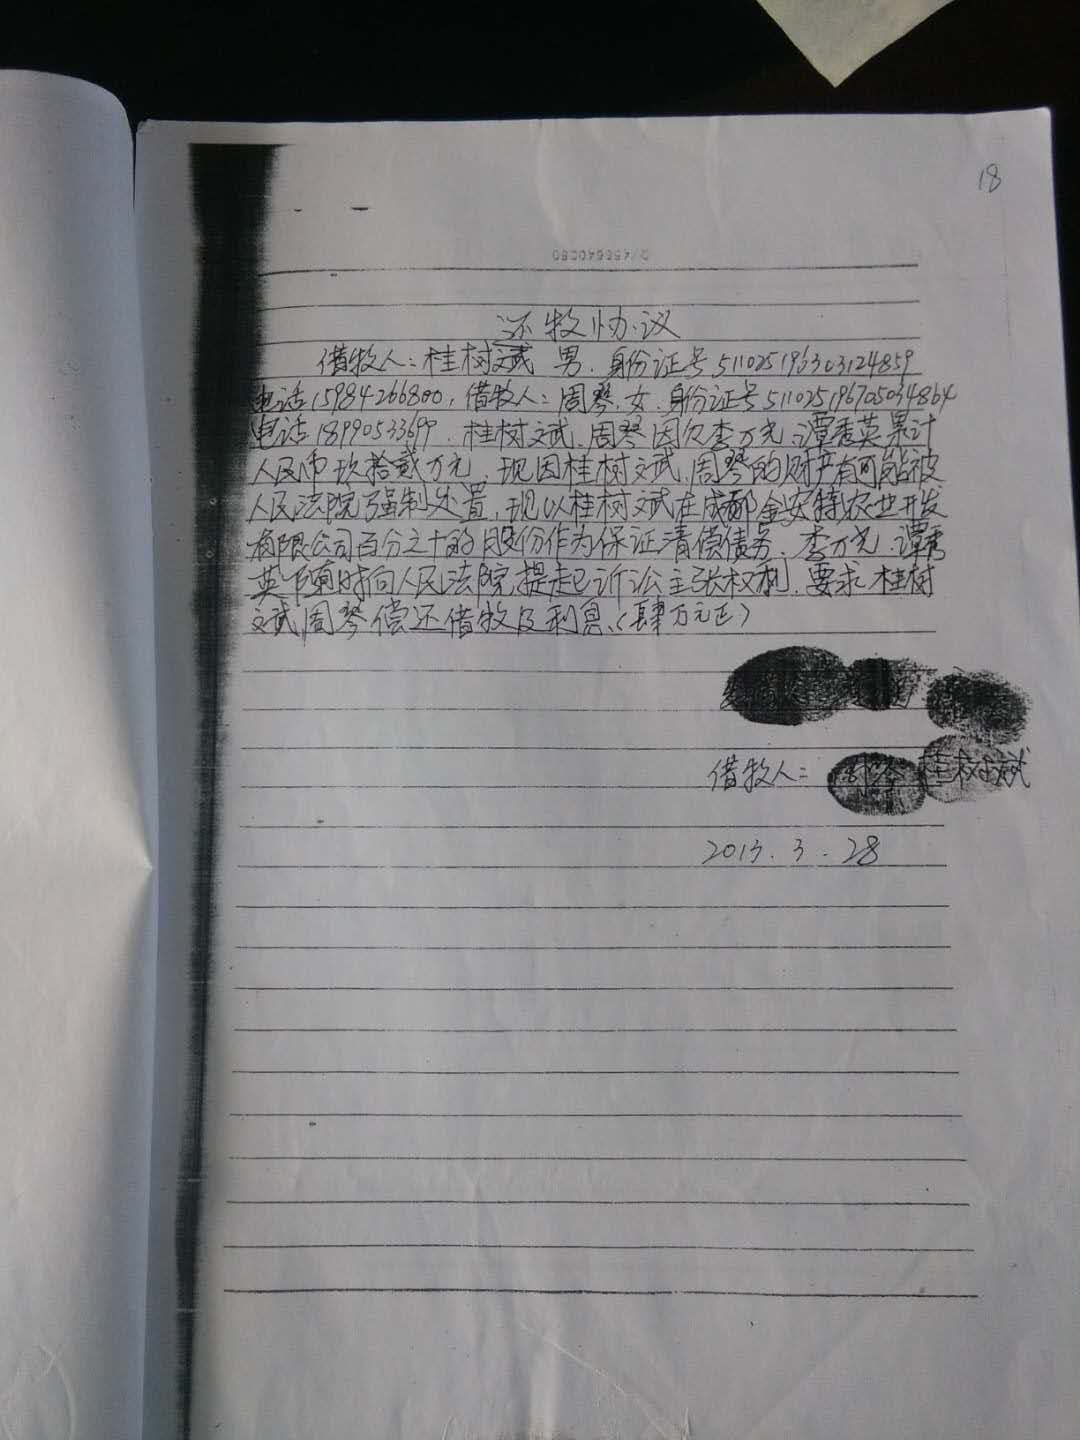 18
还款协议
借款人:桂树斌 男. 身份证号511025196303124859
电话15984266800, 借款人:周琴.女.身份证号511025196705034864
电话18990533699. 桂树斌.周琴因欠李万光.谭秀英累计
人民币玖拾贰万元,现因桂树斌.周琴的财产有可能被
人民法院强制处置,现以桂树斌在成都金安特农业开发
有限公司百分之十的股份作为保证清偿债务.李万光.谭秀
英可随时向人民法院提起诉讼主张权利,要求桂树
斌周琴偿还借款及利息.(肆万元正)
借款人: 周琴 桂树斌
2013.3.28